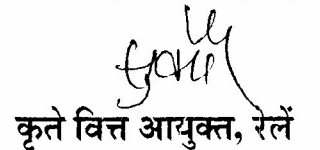 कृते वित्त आयुक्त, रेलें